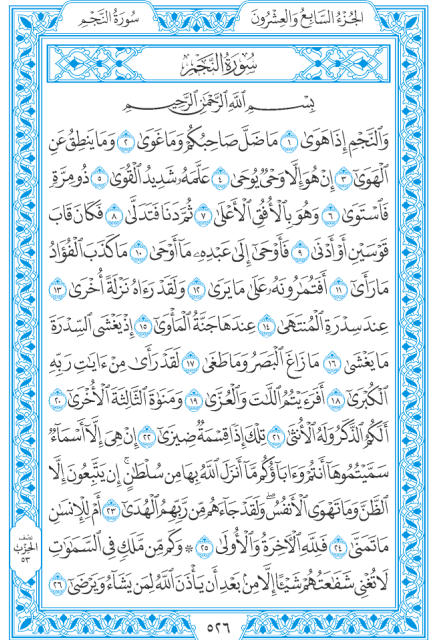 الجُزْءُ السَّابِعُ وَالعِشْرُونَ
سُورَةُ النَّجْمِ
سُورَةُ النَّجْمِ
بِسْمِ اللَّهِ الرَّحْمَٰنِ الرَّحِيمِ
وَالنَّجْمِ إِذَا هَوَىٰ ١ مَا ضَلَّ صَاحِبُكُمْ وَمَا غَوَىٰ ٢ وَمَا يَنطِقُ عَنِ
الْهَوَىٰ ٣ إِنْ هُوَ إِلَّا وَحْيٌ يُوحَىٰ ٤ عَلَّمَهُ شَدِيدُ الْقُوَىٰ ٥ ذُو مِرَّةٍ
فَاسْتَوَىٰ ٦ وَهُوَ بِالْأُفُقِ الْأَعْلَىٰ ٧ ثُمَّ دَنَا فَتَدَلَّىٰ ٨ فَكَانَ قَابَ
قَوْسَيْنِ أَوْ أَدْنَىٰ ٩ فَأَوْحَىٰ إِلَىٰ عَبْدِهِ مَا أَوْحَىٰ ١٠ مَا كَذَبَ الْفُؤَادُ
مَا رَأَىٰ ١١ أَفَتُمَارُونَهُ عَلَىٰ مَا يَرَىٰ ١٢ وَلَقَدْ رَءَاهُ نَزْلَةً أُخْرَىٰ ١٣
عِندَ سِدْرَةِ الْمُنتَهَىٰ ١٤ عِندَهَا جَنَّةُ الْمَأْوَىٰ ١٥ إِذْ يَغْشَى السِّدْرَةَ
مَا يَغْشَىٰ ١٦ مَا زَاغَ الْبَصَرُ وَمَا طَغَىٰ ١٧ لَقَدْ رَأَىٰ مِنْ ءَايَاتِ رَبِّهِ
الْكُبْرَىٰ ١٨ أَفَرَءَيْتُمُ اللَّاتَ وَالْعُزَّىٰ ١٩ وَمَنَوٰةَ الثَّالِثَةَ الْأُخْرَىٰ ٢٠
أَلَكُمُ الذَّكَرُ وَلَهُ الْأُنثَىٰ ٢١ تِلْكَ إِذًا قِسْمَةٌ ضِيزَىٰ ٢٢ إِنْ هِيَ إِلَّا أَسْمَاءٌ
سَمَّيْتُمُوهَا أَنتُمْ وَءَابَاؤُكُم مَّا أَنزَلَ اللَّهُ بِهَا مِن سُلْطَانٍ ۚ إِن يَتَّبِعُونَ إِلَّا
الظَّنَّ وَمَا تَهْوَى الْأَنفُسُ ۖ وَلَقَدْ جَاءَهُم مِّن رَّبِّهِمُ الْهُدَىٰ ٢٣ أَمْ لِلْإِنسَانِ
مَا تَمَنَّىٰ ٢٤ فَلِلَّهِ الْآخِرَةُ وَالْأُولَىٰ ٢٥ ۞ وَكَم مِّن مَّلَكٍ فِي السَّمَاوَاتِ
لَا تُغْنِي شَفَاعَتُهُمْ شَيْئًا إِلَّا مِن بَعْدِ أَن يَأْذَنَ اللَّهُ لِمَن يَشَاءُ وَيَرْضَىٰ ٢٦
نصف
الحِزْبِ
٥٣
٥٢٦